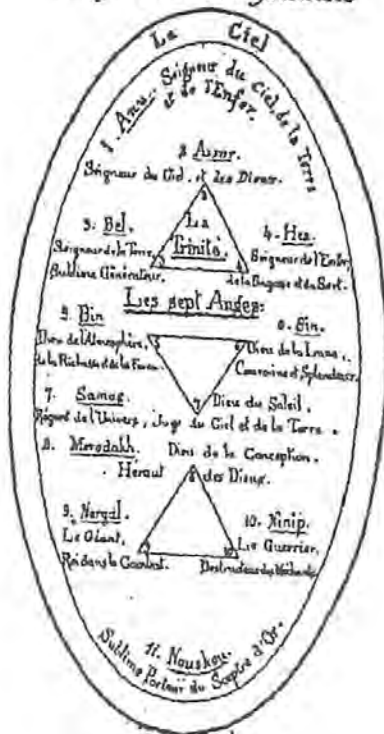 La Ciel
1. Anu. Seigneur du Ciel, de la Terre
et de l'Enfer.
2 Assur.
Seigneur du Ciel et des Dieux.
3. Bel.
Seigneur de la Terre,
Sublime Générateur.
La
Trinité.
4. Hea.
Seigneur de l'Enfer,
de la Sagesse et du Sort.
Les sept Anges:
5. Bin
Dieu de l'Atmosphère,
de la Richesse et de la
6. Sin.
Dieu de la Lune,
Couronne et Splendeur.
7. Samas. Dieu du Soleil,
Régent de l'Univers, Juge du Ciel et de la Terre.
8. Merodakh. Dieu de la Conception.
Héraut des Dieux.
9. Nergal.
Le Géant,
Roi dans le Combat.
10. Ninip.
Le Guerrier,
Destructeur des Méchants
11. Nouskou.
Sublime Porteur du Sceptre d'Or.